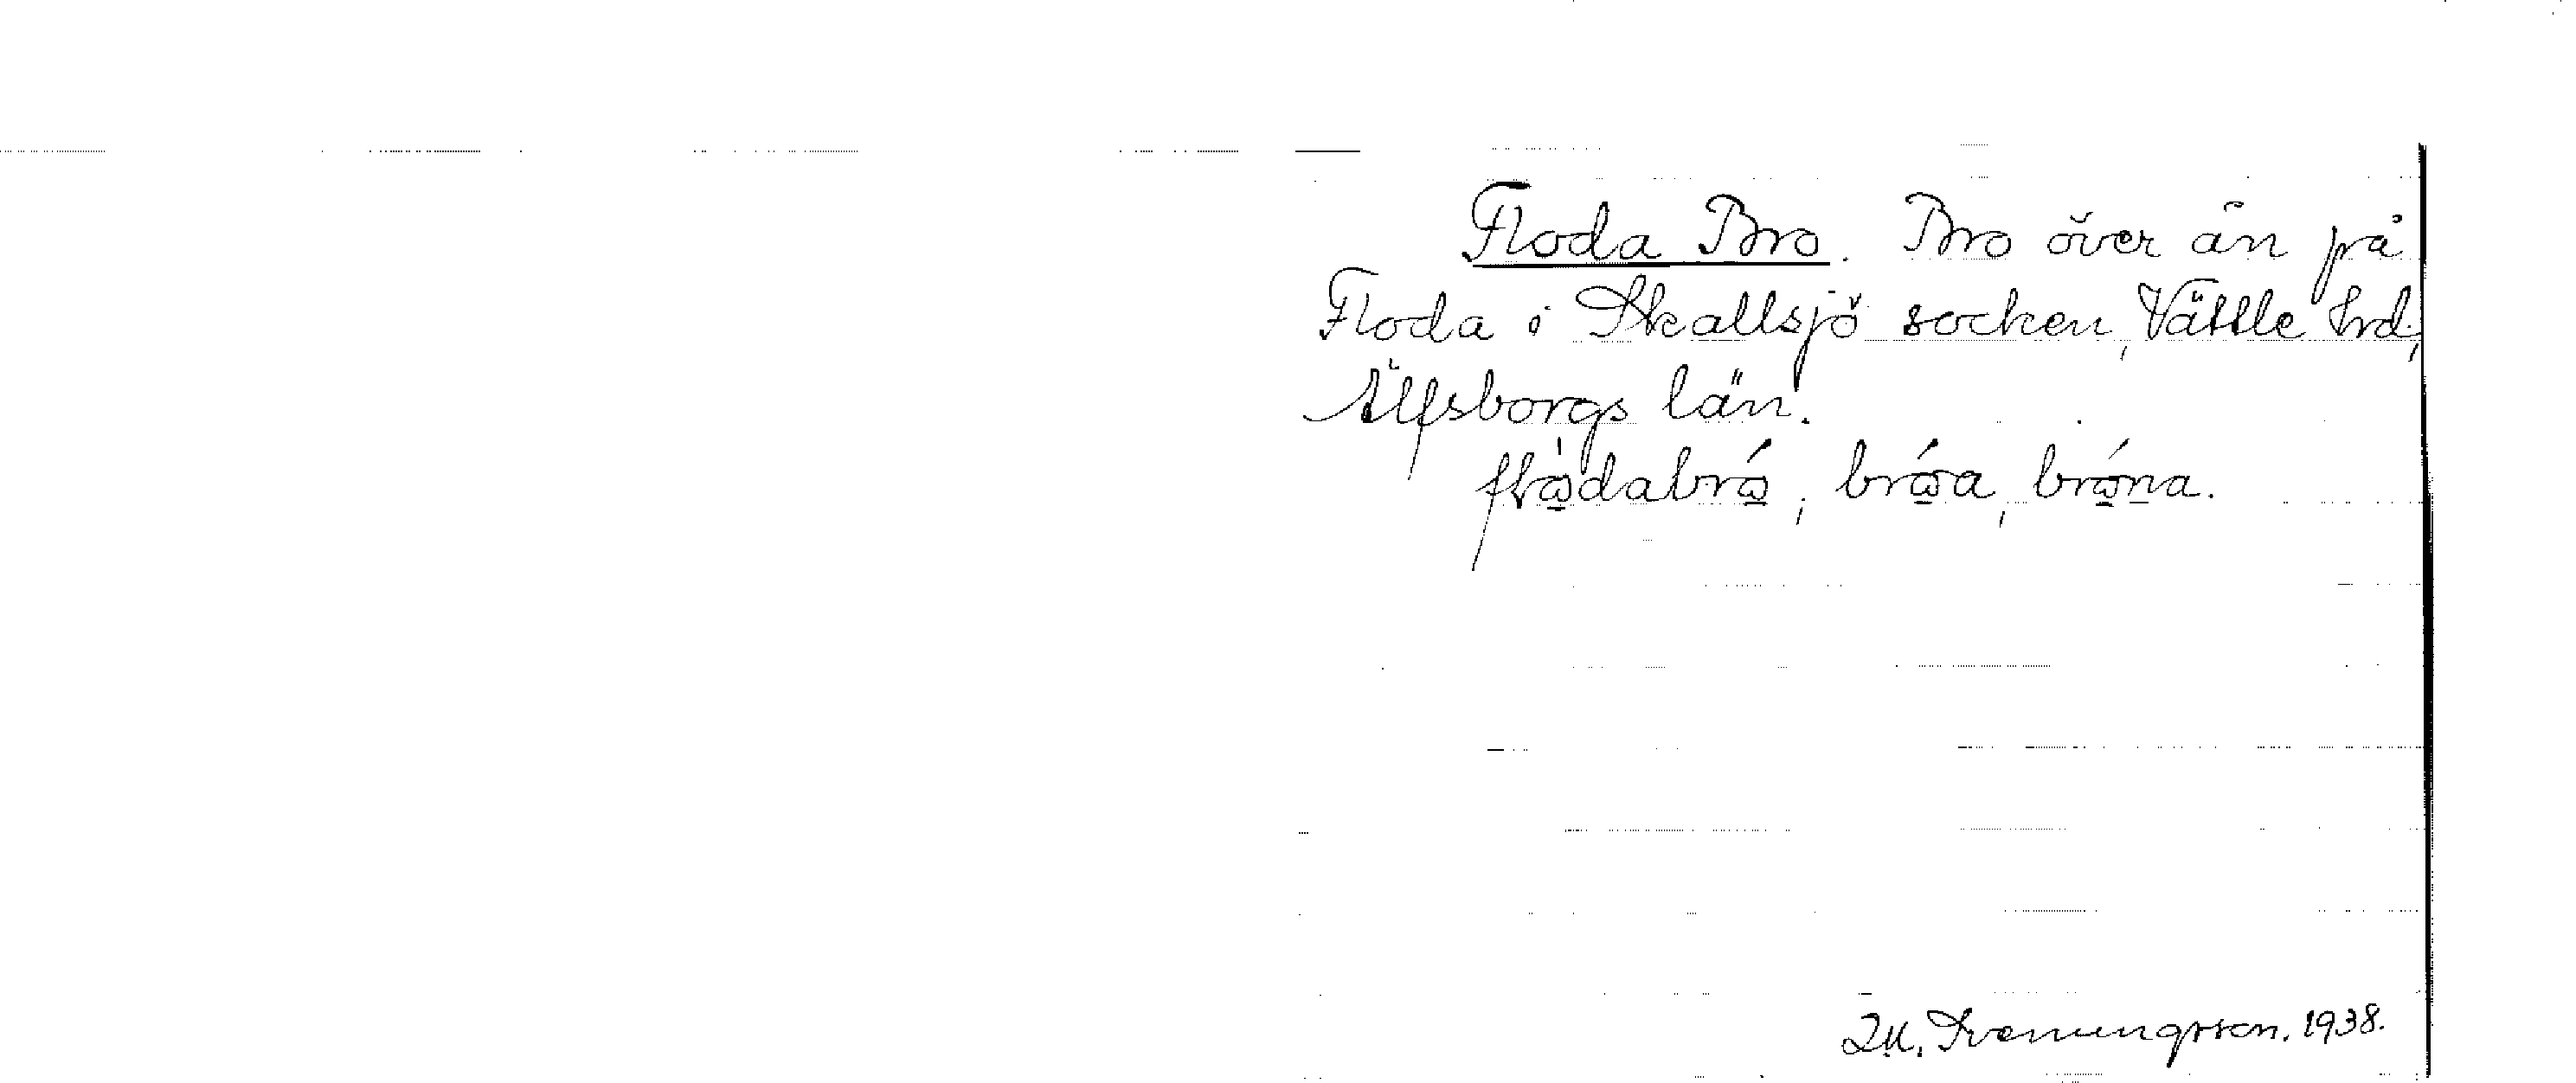 Floda Bro. Bro över ån på
Floda i Skallsjö socken, Vättle hrd,
Älfsborgs län.
flɷ̀dabrɷ́, brɷ́a, brɷ́na.
Svenungsson. 1938.